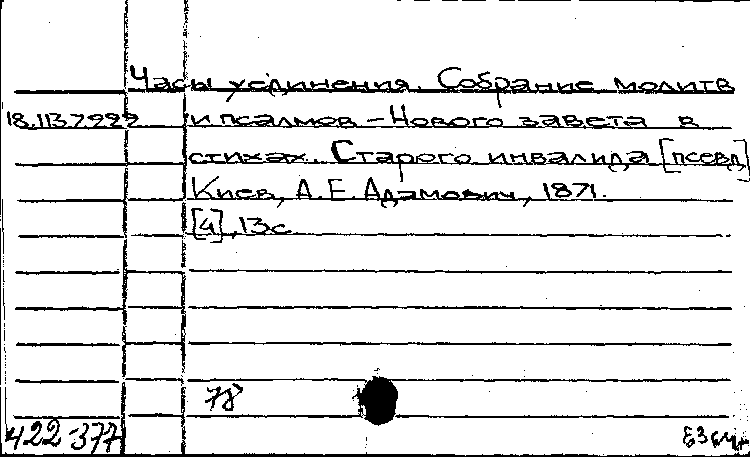 Часы уединения. Собрание молитв
18.113.7.99 и псалмов - Нового завета в
стихах. Старого инвалида [псевд]
Киев, А.Е. Адамович, 1871.
[4], 13с
78
422-377